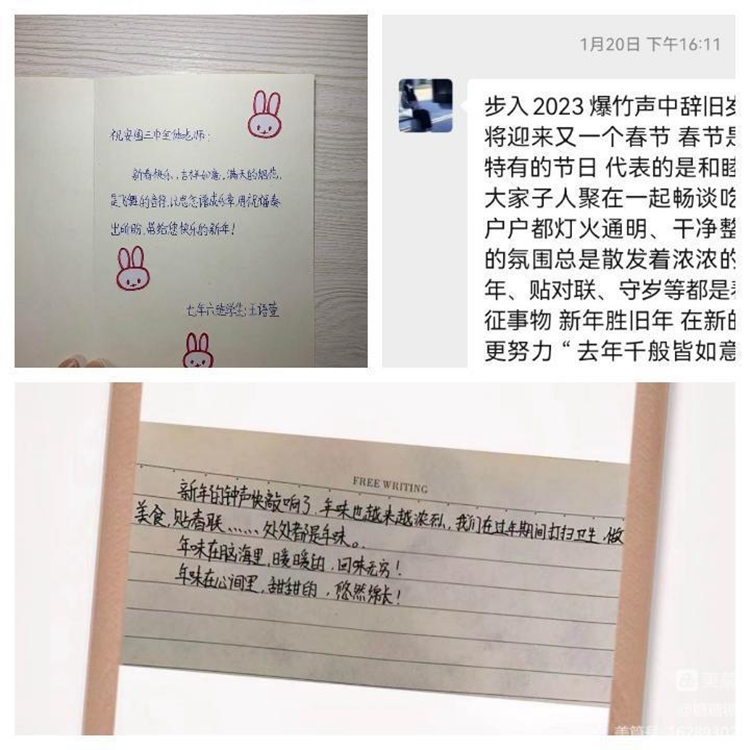 祝安图三中全体老师：
新春快乐，吉祥如意，满天的烟花，
是飞舞的音符，以思念谱成乐章，用祝福奏
出所盼，带给您快乐的新年！
七年六班学生：王语萱
1月20日 下午16:11
步入2023 爆竹声中辞旧岁
将迎来又一个春节 春节是
特有的节日 代表的是和睦
大家子人聚在一起畅谈吃
户户都灯火通明、干净整
的氛围总是散发着浓浓的
年、贴对联、守岁等都是
征事物 新年胜旧年 在新的
更努力 “ 去年千般皆如意
FREE WRITING
新年的钟声快敲响了，年味也越来越浓烈，我们在过年期间打扫卫生，做
美食，贴春联……处处都是年味。
年味在脑海里，暖暖的，回味无穷！
年味在心间里，甜甜的，悠然绵长！